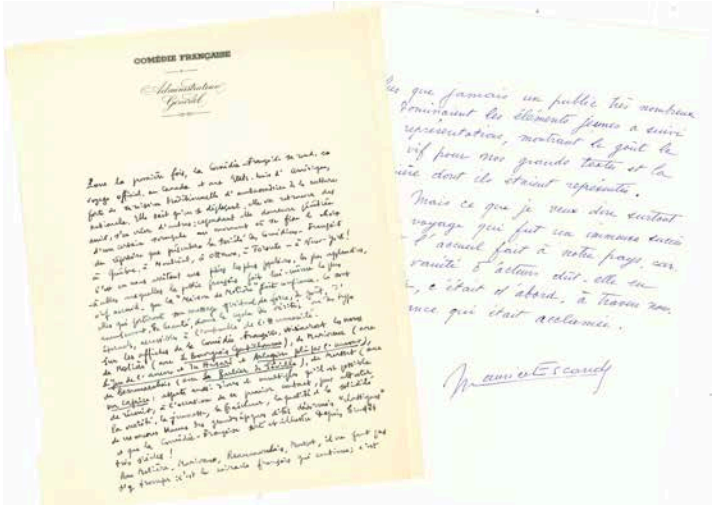 COMÉDIE FRANÇAISE
Administrateur
Général
Pour la première fois, la Comédie-Française se rend, en
voyage officiel, au Canada et aux États-Unis d'Amérique,
forte de sa mission traditionnelle d'ambassadrice de la culture
nationale. Elle sait qu'en se déplaçant, elle va retrouver des
amis, s'en créer d'autres; cependant elle demeure
d'un certain au moment où se fixe le choix
du répertoire que présentera la Société des Comédiens-Français
à Québec, à Montréal, à Ottawa, à Toronto - à New-York!
C'est en nous arrêtant aux pièces les plus
à celles auxquelles le public français fait lui-même le plus
vif accueil, que la Maison de Molière fait confiance. Ce sont
elles qui porteront son message
la beauté,
épurés, accessibles à l'ensemble de l'Humanité.
Sur les affiches de la Comédie-Française, voisineront les noms
de Molière (avec le Bourgeois Gentilhomme), de Marivaux (avec
le Jeu de l'amour et du Hasard et Arlequin poli par l'amour),
de Beaumarchais (avec le Barbier de Séville), de Musset (avec
un Caprice), aspects aussi divers et multiples qu'il est possible
de réunir, à l'occasion de ce premier contact, pour attester
la variété, la jeunesse, la fraîcheur, la qualité et la solidité
de ces œuvres issues des grandes époques dites désormais "classiques"
et que la Comédie-Française sert et illustre depuis bientôt
trois siècles!
Avec Molière, Marivaux, Beaumarchais, Musset, il ne faut pas
s'y tromper c'est le miracle français qui continue; c'est
que jamais un public très nombreux
dominaient les éléments jeunes a suivi
représentations, montrant le goût le
vif pour nos grands textes et la
dont ils étaient représentés.
Mais ce que je veux dire surtout
voyage qui fut un immense succès
l'accueil fait à notre pays, car,
vanité d'acteurs dût-elle en
c'était d'abord, à travers nous,
qui était acclamée.
Maurice Escande